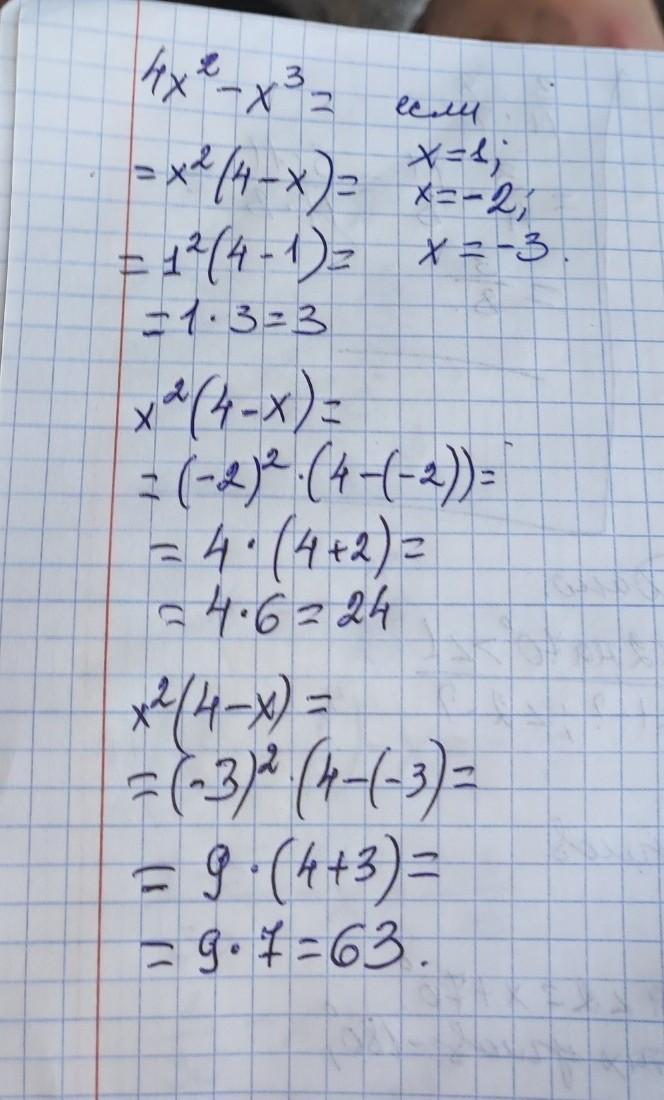 4x² - x³ = если
= x²(4 - x) = x = 1;
x = -2;
= 1²(4 - 1) = x = -3.
= 1 · 3 = 3
x²(4 - x) =
= (-2)² · (4 - (-2)) =
= 4 · (4 + 2) =
= 4 · 6 = 24
x²(4 - x) =
= (-3)² · (4 - (-3) =
= 9 · (4 + 3) =
= 9 · 7 = 63.